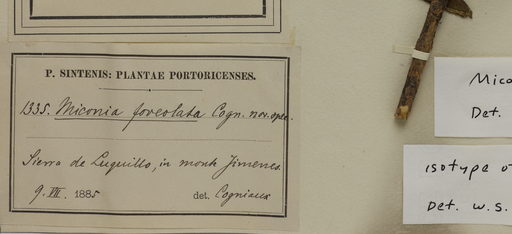 P. SINTENIS: PLANTAE PORTORICENSES.
1335. Miconia foveolata Cogn. nov. spec.
Sierra de Luquillo, in monte Jimenes.
9. VII. 1885 det. Cogniaux
Mico
Det.
isotype o
Det. W.S.